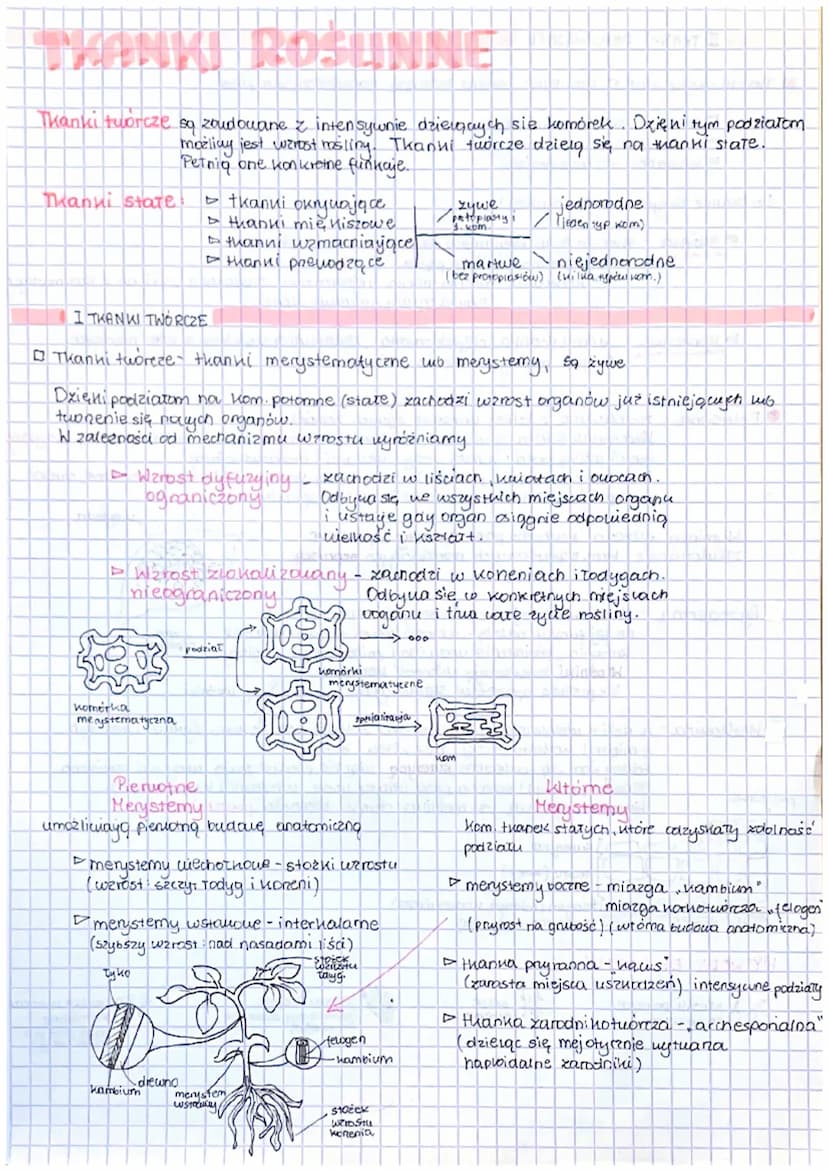 TKANKI ROŚLINNE
Tkanki twórcze są zbudowane z intensywnie dzielących się komórek. Dzięki tym podziałom
możliwy jest wzrost rośliny. Tkanki twórcze dzielą się na tkanki stałe.
Pełnią one konkretne funkcje.
Tkanki stałe:
▷ tkanki okrywające
▷ tkanki miękiszowe
▷ tkanki wzmacniające
▷ tkanki przewodzące
żywe
protoplasty i
ś. kom.
martwe
(bez protoplastów)
jednorodne
(jeden typ kom)
niejednorodne
(kilka typów kom.)
I TKANKI TWÓRCZE
□ Tkanki twórcze - tkanki merystematyczne lub merystemy, są żywe
Dzięki podziałom na kom. potomne (stałe) zachodzi wzrost organów już istniejących lub
tworzenie się nowych organów.
W zależności od mechanizmu wzrostu wyróżniamy
▷ Wzrost dyfuzyjny - zachodzi w liściach, kwiatach i owocach.
ograniczony Odbywa się we wszystkich miejscach organu
i ustaje gdy organ osiągnie odpowiednią
wielkość i kształt.
▷ Wzrost zlokalizowany - zachodzi w korzeniach i łodygach.
nieograniczony Odbywa się w konkretnych miejscach
organu i trwa całe życie rośliny.
podział
komórki
merystematyczne
komórka
merystematyczna
specjalizacja
kom
Pierwotne
Merystemy
umożliwiają pierwotną budowę anatomiczną
▷ merystemy wierzchołkowe - stożki wzrostu
(wzrost: szczyt łodyg i korzeni)
▷ merystemy wstawowe - interkalarne
(szybszy wzrost: nad nasadami liści)
Wtórne
Merystemy
kom. tkanek stałych, które odzyskały zdolność
podziału
▷ merystemy boczne - miazga „kambium"
miazga korkotwórcza „felogen"
(przyrost na grubość) (wtórna budowa anatomiczna)
▷ tkanka przyranna - „kalus"
(zarasta miejsca uszkodzeń) intensywne podziały
▷ tkanka zarodnikotwórcza - „archesporialna"
(dzieląc się mejotycznie wytwarza
haploidalne zarodniki)
łyko
stożek
wzrostu
łodyg.
felogen
kambium
drewno
kambium
merystem
wstawowy
stożek
wzrostu
korzenia